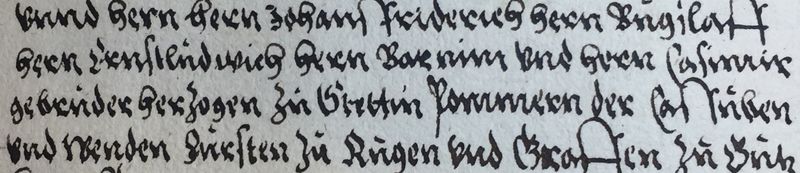 vnnd hern hern Johans Friderich hern Bugislaff
hern Ernstludwich hern Barnim vnd hern Casimir
gebruder herzogen zu Stettin Pommern der Cassuben
vnd Wenden Fursten zu Rugen vnd Graffen zu Gutz